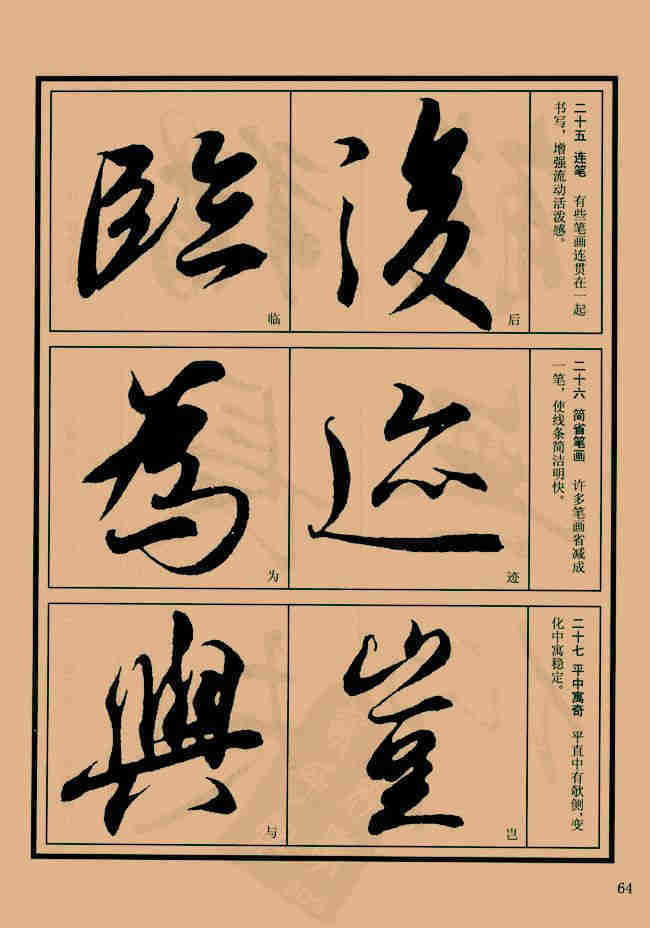 二十五 连笔 有些笔画连贯在一起
书写，增强流动活泼感。
後
后
臨
临
二十六 简省笔画 许多笔画省减成
一笔，使线条简洁明快。
迹
迹
為
为
二十七 平中寓奇 平直中有欹侧，变
化中寓稳定。
豈
岂
與
与
64